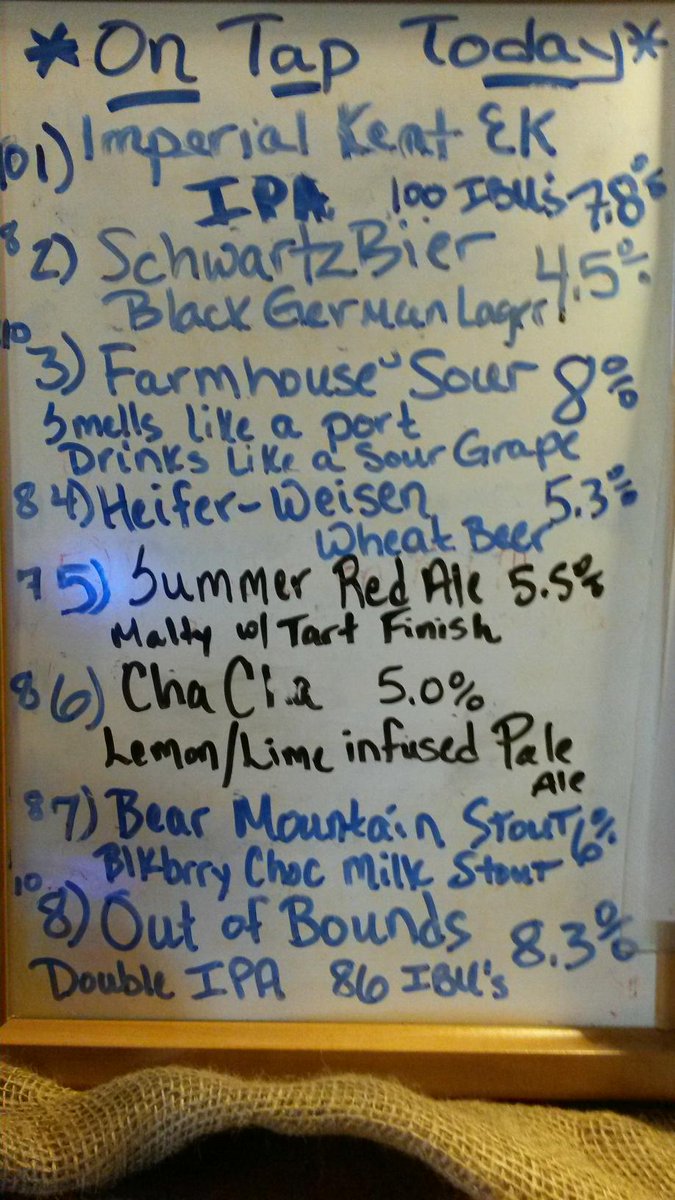 *On Tap Today*
10 1) Imperial Kent EK
IPA 100 IBU's 7.8%
8 2) SchwartzBier 4.5%
Black German Lager
10 3) Farmhouse Sour 8%
Smells like a port
Drinks Like a Sour Grape
8 4) Heifer-Weisen 5.3%
Wheat Beer
7 5) Summer Red Ale 5.5%
Malty w/ Tart Finish
8 6) Cha Cha 5.0%
Lemon/Lime infused Pale
Ale
8 7) Bear Mountain Stout 6%
Blkbrry Choc Milk Stout
10 8) Out of Bounds 8.3%
Double IPA 86 IBU's